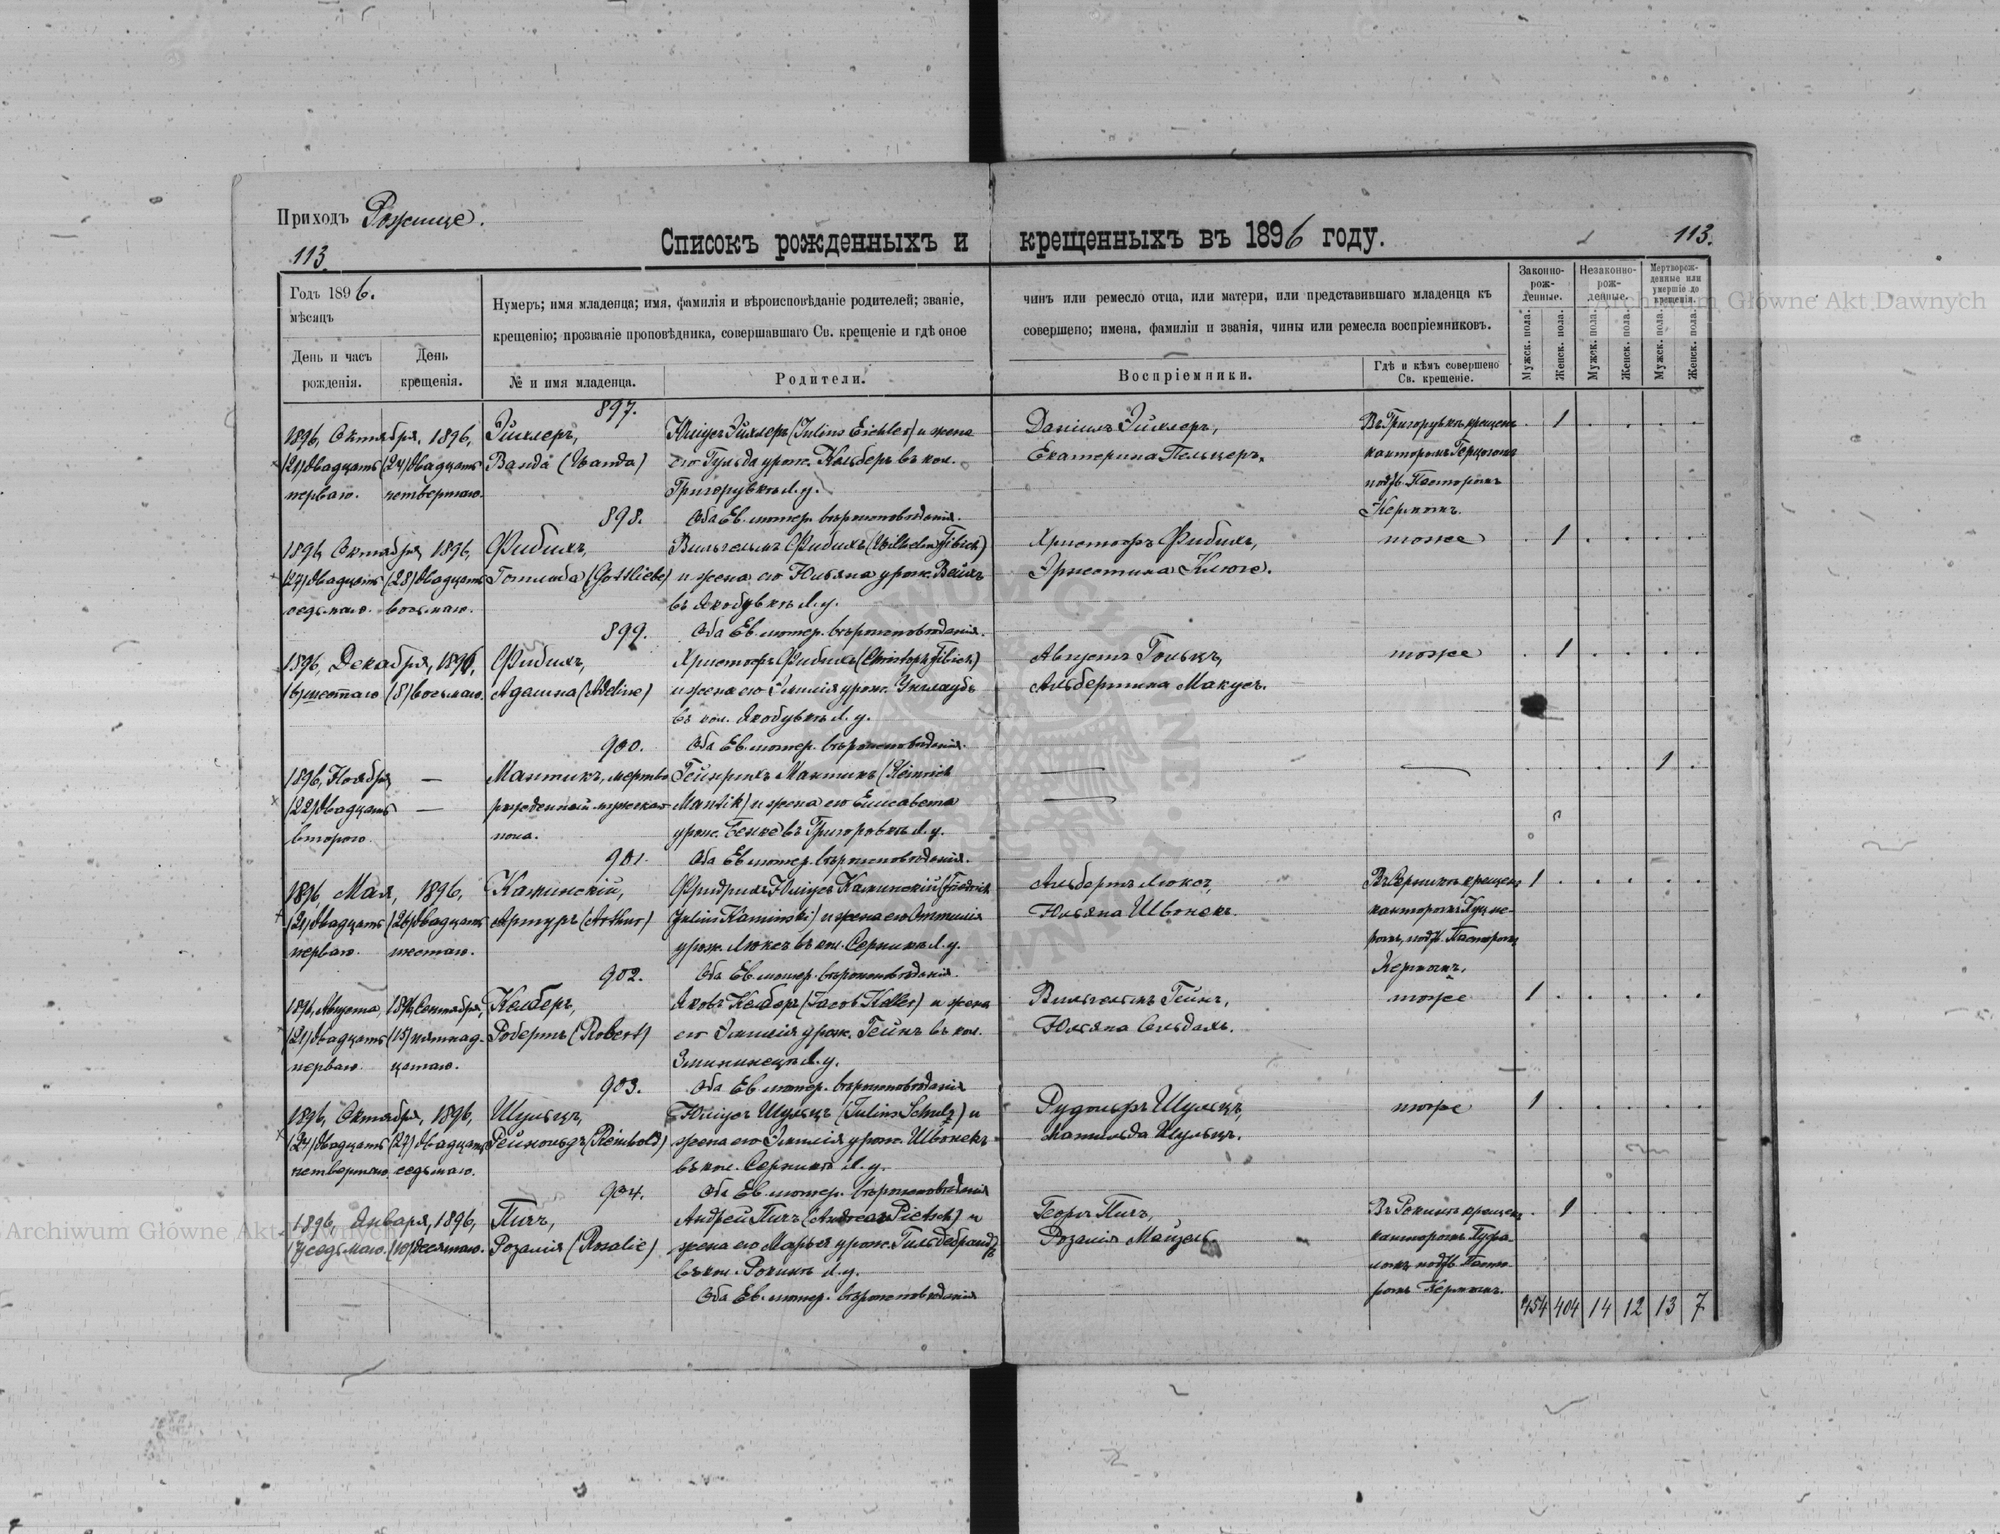 Приходъ Рожище.
113.
Списокъ рожденныхъ и крещенныхъ въ 1896 году.
113.
Годъ 1896.
мѣсяцъ
День и часъ рожденія.
День крещенія.
Нумеръ; имя младенца; имя, фамилія и вѣроисповѣданіе родителей; званіе, чинъ или ремесло отца, или матери, или представившаго младенца къ
крещенію; прозваніе проповѣдника, совершавшаго Св. крещеніе и гдѣ оное совершено; имена, фамиліи и званія, чины или ремесла воспріемниковъ.
№ и имя младенца.
Родители.
Воспріемники.
Гдѣ и кѣмъ совершено Св. крещеніе.
Законно-рож-денные.
Незаконно-рож-денные.
Мертворож-денные или умершіе до крещенія.
Мужск. пола.
Женск. пола.
Мужск. пола.
Женск. пола.
Мужск. пола.
Женск. пола.
897.
1896, Октября, 1896, Эйхлеръ, Юліусъ Эйхлеръ (Julius Eichler) и жена Даніилъ Эйхлеръ, Въ Григорувкѣ крещенъ 1
(21) двадцать (24) двадцать Ванда (Wanda) его Гульда урож. Кельберъ въ кол. Екатерина Пельцеръ. канторомъ
перваго. четвертаго. Григорувкѣ Л. у. подтв. Пасторомъ
898. Оба Ев. лютер. вѣроисповѣданія. Кермомъ.
1896, Октября, 1896, Фибихъ, Вильгельмъ Фибихъ (Wilhelm Fibich) Христофъ Фибихъ, тоже 1
(27) двадцать (28) двадцать Готлиба (Gottliebe) и жена его Юльяна урож. Вейхъ Эрнестина Клюге.
седьмаго. восьмаго. въ Якобувкѣ Л. у.
899. Оба Ев. лютер. вѣроисповѣданія.
1896, Декабря, 1896, Фибихъ, Христофъ Фибихъ (Christoph Fibich) Августъ Гольцъ, тоже 1
(6) шестаго (8) восьмаго. Адалина (Adeline) и жена его Эмилія урож. Альбертина Макусъ.
въ кол. Якобувкѣ Л. у.
900. Оба Ев. лютер. вѣроисповѣданія.
1896, Ноября — Мантикъ, мертво Гейнрихъ Мантикъ (Heinrich — — 1
(22) двадцать — рожденный мужскаго Mantik) и жена его Елисавета —
втораго. пола. урож. Бенке въ Григоровкѣ Л. у.
901. Оба Ев. лютер. вѣроисповѣданія.
1896, Мая, 1896, Каминскій, Фридрихъ Юліусъ Каминскій (Friedrich Альбертъ Люксъ, Въ Серникѣ крещенъ 1
(21) двадцать (26) двадцать Артуръ (Arthur) Julius Kaminski) и жена его Оттилія Юльяна Швонекъ. канторомъ
перваго. шестаго. урож. Люксъ въ кол. Серникѣ Л. у. подтв. Пасторомъ
902. Оба Ев. лютер. вѣроисповѣданія. Кермомъ.
1896, Августа 1896, Сентября, Келлеръ, Яковъ Келлеръ (Jacob Keller) и жена Вильгельмъ Гейнъ, тоже 1
(21) двадцать (15) пятнад- Робертъ (Robert) его Эмилія урож. Гейнъ въ кол. Юльяна
перваго. цатаго. Л. у.
903. Оба Ев. лютер. вѣроисповѣданія
1896, Октября, 1896, Шульцъ, Юліусъ Шульцъ (Julius Schulz) и Рудольфъ Шульцъ, тоже 1
(24) двадцать (27) двадцать Рейнольдъ (Reinhold) жена его Эмилія урож. Швонекъ Матильда Шульцъ.
четвертаго седьмаго. въ кол. Серникѣ Л. у.
904. Оба Ев. лютер. вѣроисповѣданія
1896, Января, 1896, Пичъ, Андрей Пичъ (Andreas Pietsch) и Георгъ Пичъ, Въ Рокинѣ крещенъ 1
(7) седьмаго. (10) десятаго. Розалія (Rosalie) жена его Марья урож. Гильдебрандъ Розалія Майзель. канторомъ
въ кол. Рокинѣ Л. у. подтв. Пасто-
Оба Ев. лютер. вѣроисповѣданія ромъ Кермомъ.
454 404 14 12 13 7
Archiwum Główne Akt Dawnych
Archiwum Główne Akt Dawnych